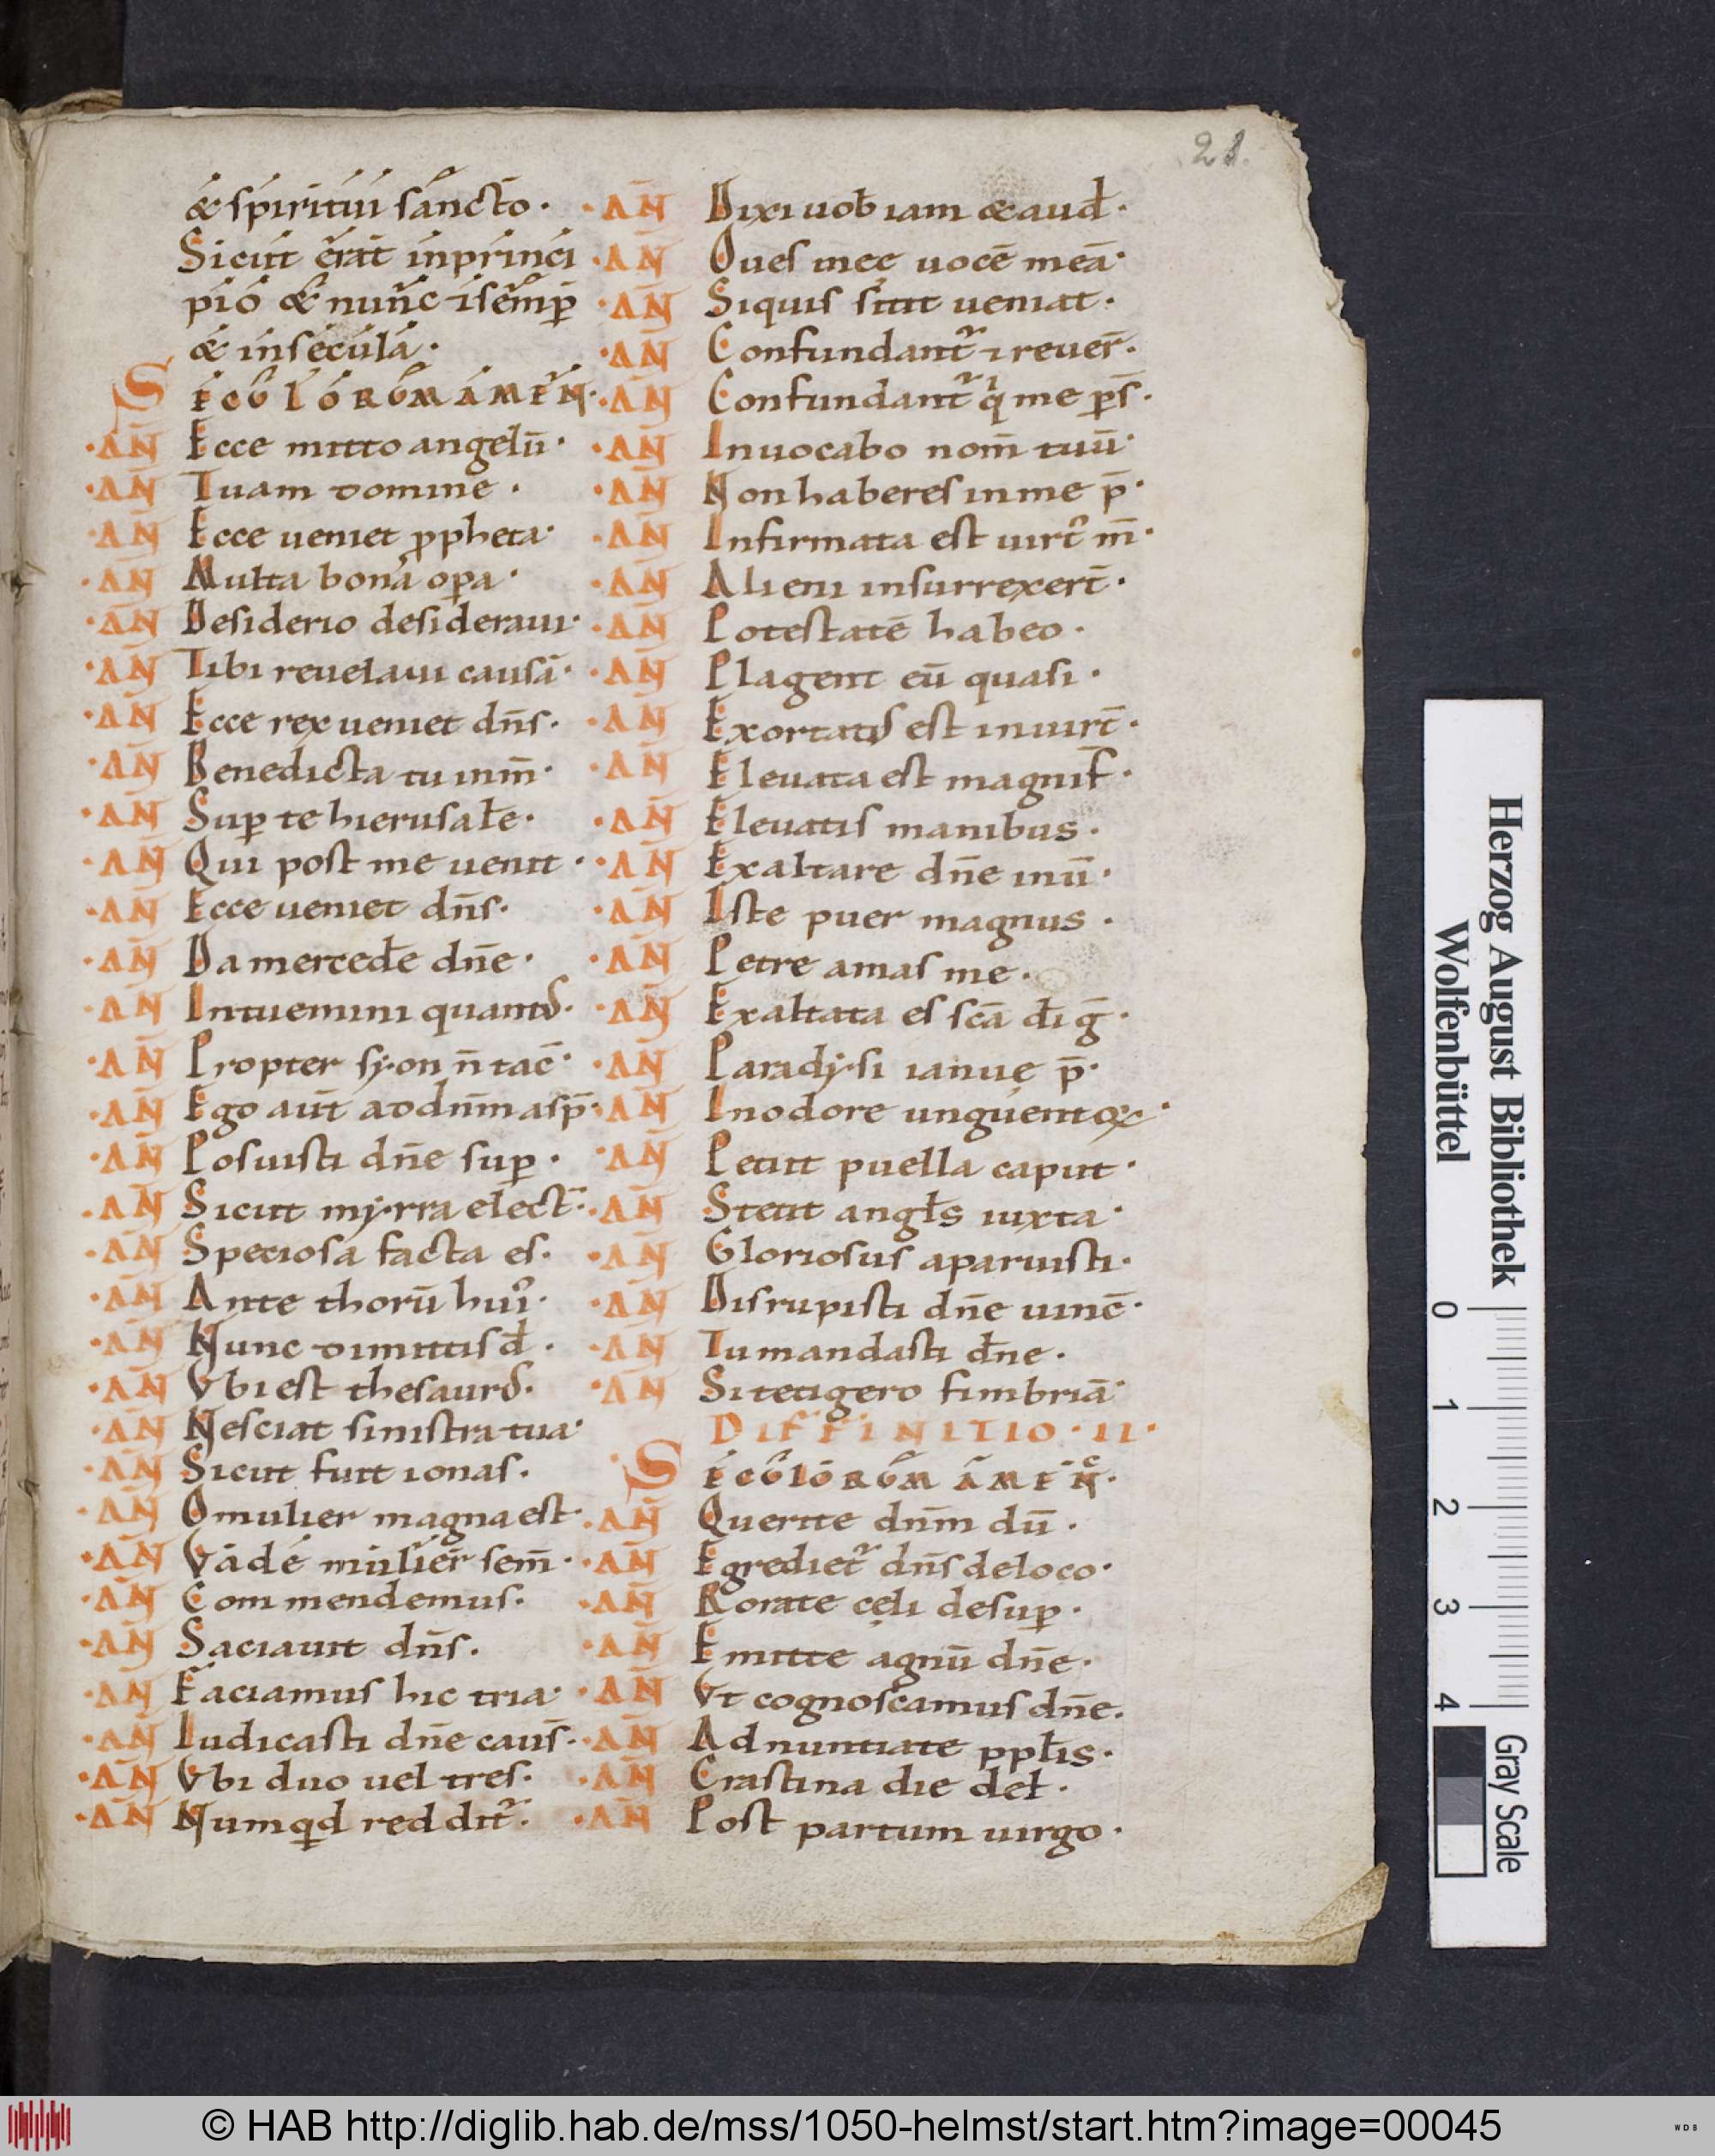 21.
& spiritui sancto.
Sicut erat inprinci
pio & nunc ⁊ semꝑ
& insecula.
SECULORUM AMEN.
.AN̄ Ecce mitto angelū.
.AN̄ Tuam domine.
.AN̄ Ecce ueniet ꝓpheta.
.AN̄ Multa bona oꝑa.
.AN̄ Desiderio desideraui.
.AN̄ Tibi reuelaui causā.
.AN̄ Ecce rex ueniet dn̄s.
.AN̄ Benedicta tu inm̄.
.AN̄ Suꝑ te hierusał́e.
.AN̄ Qui post me uenit.
.AN̄ Ecce ueniet dn̄s.
.AN̄ Da mercedē dn̄e.
.AN̄ Intuemini quantꝰ.
.AN̄ Propter syon n̄ tac̄.
.AN̄ Ego aut̄ addn̄m asp̄.
.AN̄ Posuisti dn̄e suꝑ.
.AN̄ Sicut myrra elect̄.
.AN̄ Speciosa facta es.
.AN̄ Ante thorū huiꝰ.
.AN̄ Nunc dimittis đ.
.AN̄ Vbi est thesaurꝰ.
.AN̄ Nesciat sinistra tua.
.AN̄ Sicut fuit ionas.
.AN̄ Omulier magna est.
.AN̄ Vade mulier sem̄.
.AN̄ Commendemus.
.AN̄ Saciauit dn̄s.
.AN̄ Faciamus hic tria.
.AN̄ Iudicasti dn̄e caus̄.
.AN̄ Vbi duo uel tres.
.AN̄ Numqͥd redditᷣ.
.AN̄ Dixi uob̄ iam & auđ.
.AN̄ Oues meę uocē meā.
.AN̄ Siquis sitit ueniat.
.AN̄ Confundantᷣ ⁊ reuer̄.
.AN̄ Confundantᷣ qͥ me ꝑs̄.
.AN̄ Inuocabo nom̄ tuū.
.AN̄ Non haberes inme p̄.
.AN̄ Infirmata est uirtꝰ m̄.
.AN̄ Alieni insurrexert̄.
.AN̄ Potestatē habeo.
.AN̄ Plagent eū quasi.
.AN̄ Exortatꝰ est inuirt̄.
.AN̄ Eleuata est magnif̄.
.AN̄ Eleuatis manibus.
.AN̄ Exaltare dn̄e inū.
.AN̄ Iste puer magnus.
.AN̄ Petre amas me.
.AN̄ Exaltata es scā đi ḡ.
.AN̄ Paradysi ianuę p̄.
.AN̄ Inodore unguentoꝝ.
.AN̄ Petiit puella caput.
.AN̄ Stetit angłs iuxta.
.AN̄ Gloriosus aparuisti.
.AN̄ Disrupisti dn̄e uinc̄.
.AN̄ Tu mandasti đne.
.AN̄ Si tetigero fimbriā.
DIFFINITIO.II.
SECULORUM AMEN.
.AN̄ Querite dn̄m dū.
.AN̄ Egredietᷣ dn̄s de loco.
.AN̄ Rorate cęli desuꝑ.
.AN̄ Emitte agnū dn̄e.
.AN̄ Vt cognoscamus dn̄e.
.AN̄ Adnuntiate ppłis.
.AN̄ Crastina die deł.
.AN̄ Post partum uirgo.
Herzog August Bibliothek
Wolfenbüttel
0 1 2 3 4
Gray Scale
© HAB http://diglib.hab.de/mss/1050-helmst/start.htm?image=00045
WDB